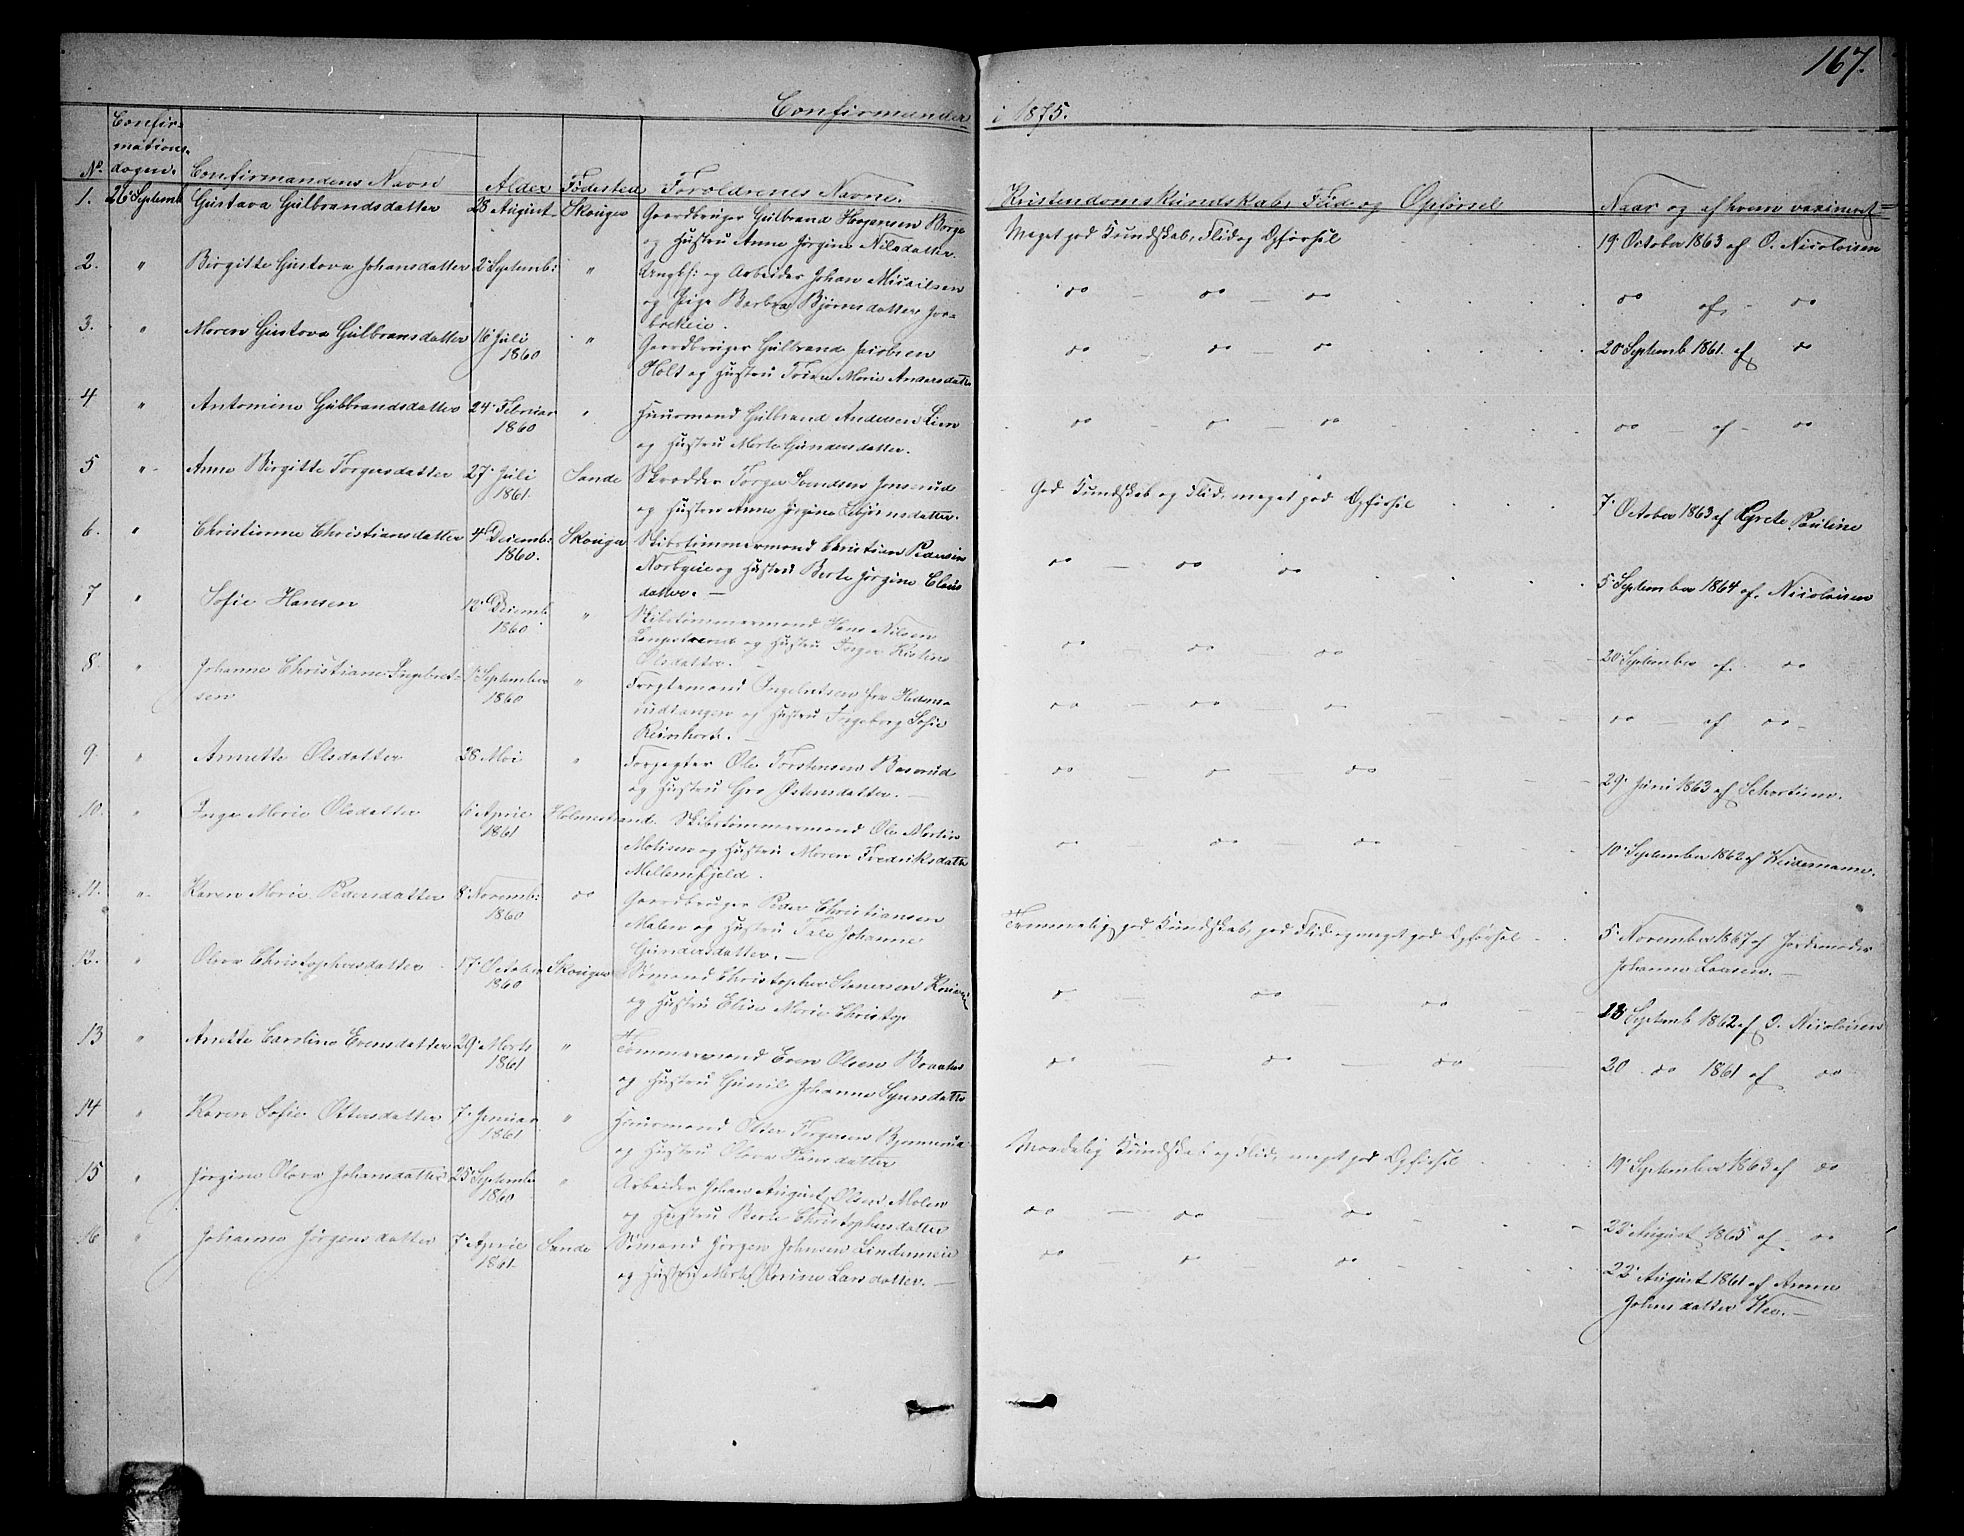 167.
Confirmander i 1875.
No. Confirmationsdagen. Confirmandens Navn Alder Fødested Forældrenes Navne. Kristendomskundskab, Flid og Opførsel Naar og af hvem vaxineret
1. 26 Septemb Gustava Gulbrandsdatter 28 August Skouger Gaardbruger Gulbrand Borge
og Hustru Anne Jørgine Nilsdatter.
Meget god Kundskab, Flid og Opførsel 19 October 1863 af O. Nicolaisen
2. " Birgitte Gustava Johansdatter 2 Septemb: " Ungk: og Arbeider Johan
og Pige Barbra Bjørnsdatter
do — do — do do af - do
3. " Maren Gustava Gulbransdatter 16 Juli
1860 " Gaardbruger Gulbrand Jacobsen
Holt og Hustru Marie
do — do — do 20 Septemb 1861. af do
4 " Antomine Gulbrandsdatter 24 Februar
1860 " Huusmand Gulbrand Andersen Lien
og Hustru Marte Gundersdatter.
do — do — do do — af - do
5 " Anne Birgitte Torgersdatter 27 Juli
1861. Sande Skrædder Torger
og Hustru Anne Jørgine
God Kundskab og Flid, meget god Opførsel 7 October 1863 af Grete Pauline
6. " Christianne Christiansdatter 4 Decemb:
1860. Skouger Skibstimmermand Christian Pedersen
og Hustru Berte Jørgine Claus
datter. —
do — do — do 5 September 1864 af. Nicolaisen
7 " Sofie Hansen 12 Decemb.
1860 " Skibstømmermand Hans Nilsen
og Hustru
Olsdatter. —
do — do — do 20 September af. do
8. " Johanne Christiane Ingebret-
sen September
1860 " Ingebretsen fra
og Hustru Ingeborg Sofie
do — do — do do — af do -
9. " Annette Olsdatter 28 Mai " Forpagter Ole Torstensen
og Hustru Gro Østensdatter. —
do — do — do 29 Juni 1863 af
10. " Inga Marie Olsdatter 6 April
1861 Holmestrand. Skibstømmermand Ole Martin
og Hustru Maren Fredriksdatter
Mellemfjeld.
do — do — do 10 September 1862 af Weidemann.
11. " Karen Marie Pedersdatter 8 Novemb:
1860 do Gaardbruger Peder Christiansen
og Hustru Johanne
Gundersdatter. —
Temmelig god Kundskab, god Flid og meget god Opførsel 5 November 1867 af Jordemoder
Johanne —
12. " Olava Christophersdatter 17 October
1860 Skouger Sømand Christopher
og Hustru Elise Marie Christop
do — do — do 13 Septemb 1862 af O. Nicolaisen
13 " Anette Caroline Evensdatter 29 Marts
1861 " Tømmermand Even Olsen
og Hustru Johanne
do — do — do 20 do 1861 af do
14 " Karen Sofie Ottersdatter 7 Januar
1861 " Huusmand Otter Torgersen
og Hustru Olava Hansdatter
Maadelig Kundskab og Flid, meget god Opførsel 19 September 1863 af do
15 " Jørgine Olava Johansdatter 25 Septembr
1860 " Arbeider Johan August Olsen
og Hustru Berte Christophersdatter
do — do — do 22 August 1865 af do
16 " Johanne Jørgensdatter 7 April
1861. Sande Sømand Jørgen Johnsen
og Hustru Larsdatter. —
do — do — do 22 August 1861 af Anne
Johnsdatter —